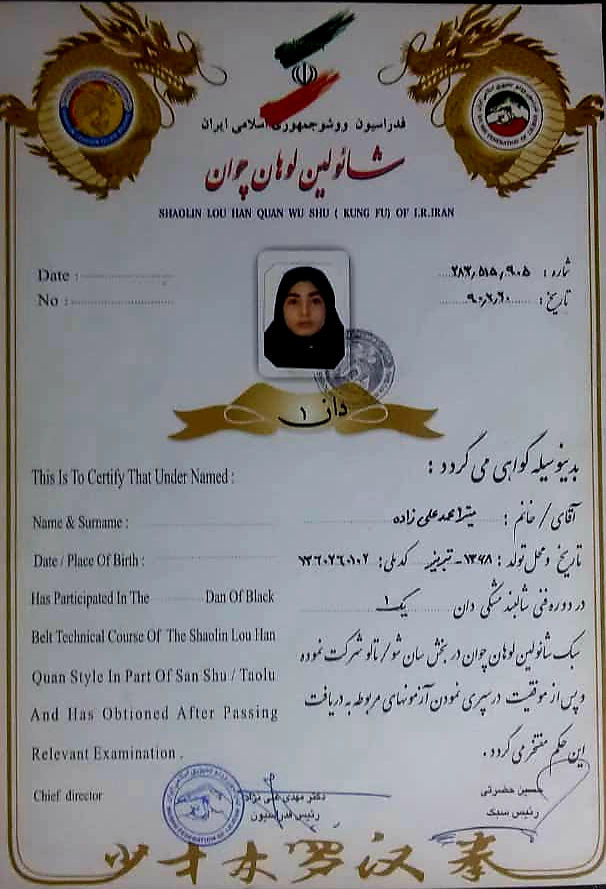 فدراسیون ووشوجمهوری اسلامی ایران
شائولین لوهان چوان
SHAOLIN LOU HAN QUAN WU SHU ( KUNG FU) OF I.R.IRAN
Date :
No :
شماره :
تاریخ :
دان ۱
This Is To Certify That Under Named :
Name & Surname :
Date / Place Of Birth :
Has Participated In The Dan Of Black
Belt Technical Course Of The Shaolin Lou Han
Quan Style In Part Of San Shu / Taolu
And Has Obtioned After Passing
Relevant Examination .
Chief director
بدینوسیله گواهی می گردد :
آقای / خانم : میترا محمدعلی زاده
تاریخ ومحل تولد : ۱۳۶۸- تبریز کدملی: ۱۳۶۰۲۶۰۱۰۲
در دوره فنی شالبند مشکی دان یک ۱
سبک شائولین لوهان چوان در بخش سان شو / تالو شرکت نموده
و پس از موفقیت در سپری نمودن آزمونهای مربوطه به دریافت
این حکم مفتخر می گردد .
دکتر مهدی علی نژاد
رئیس فدراسیون
حسین حضرتی
رئیس سبک
少林羅汉拳